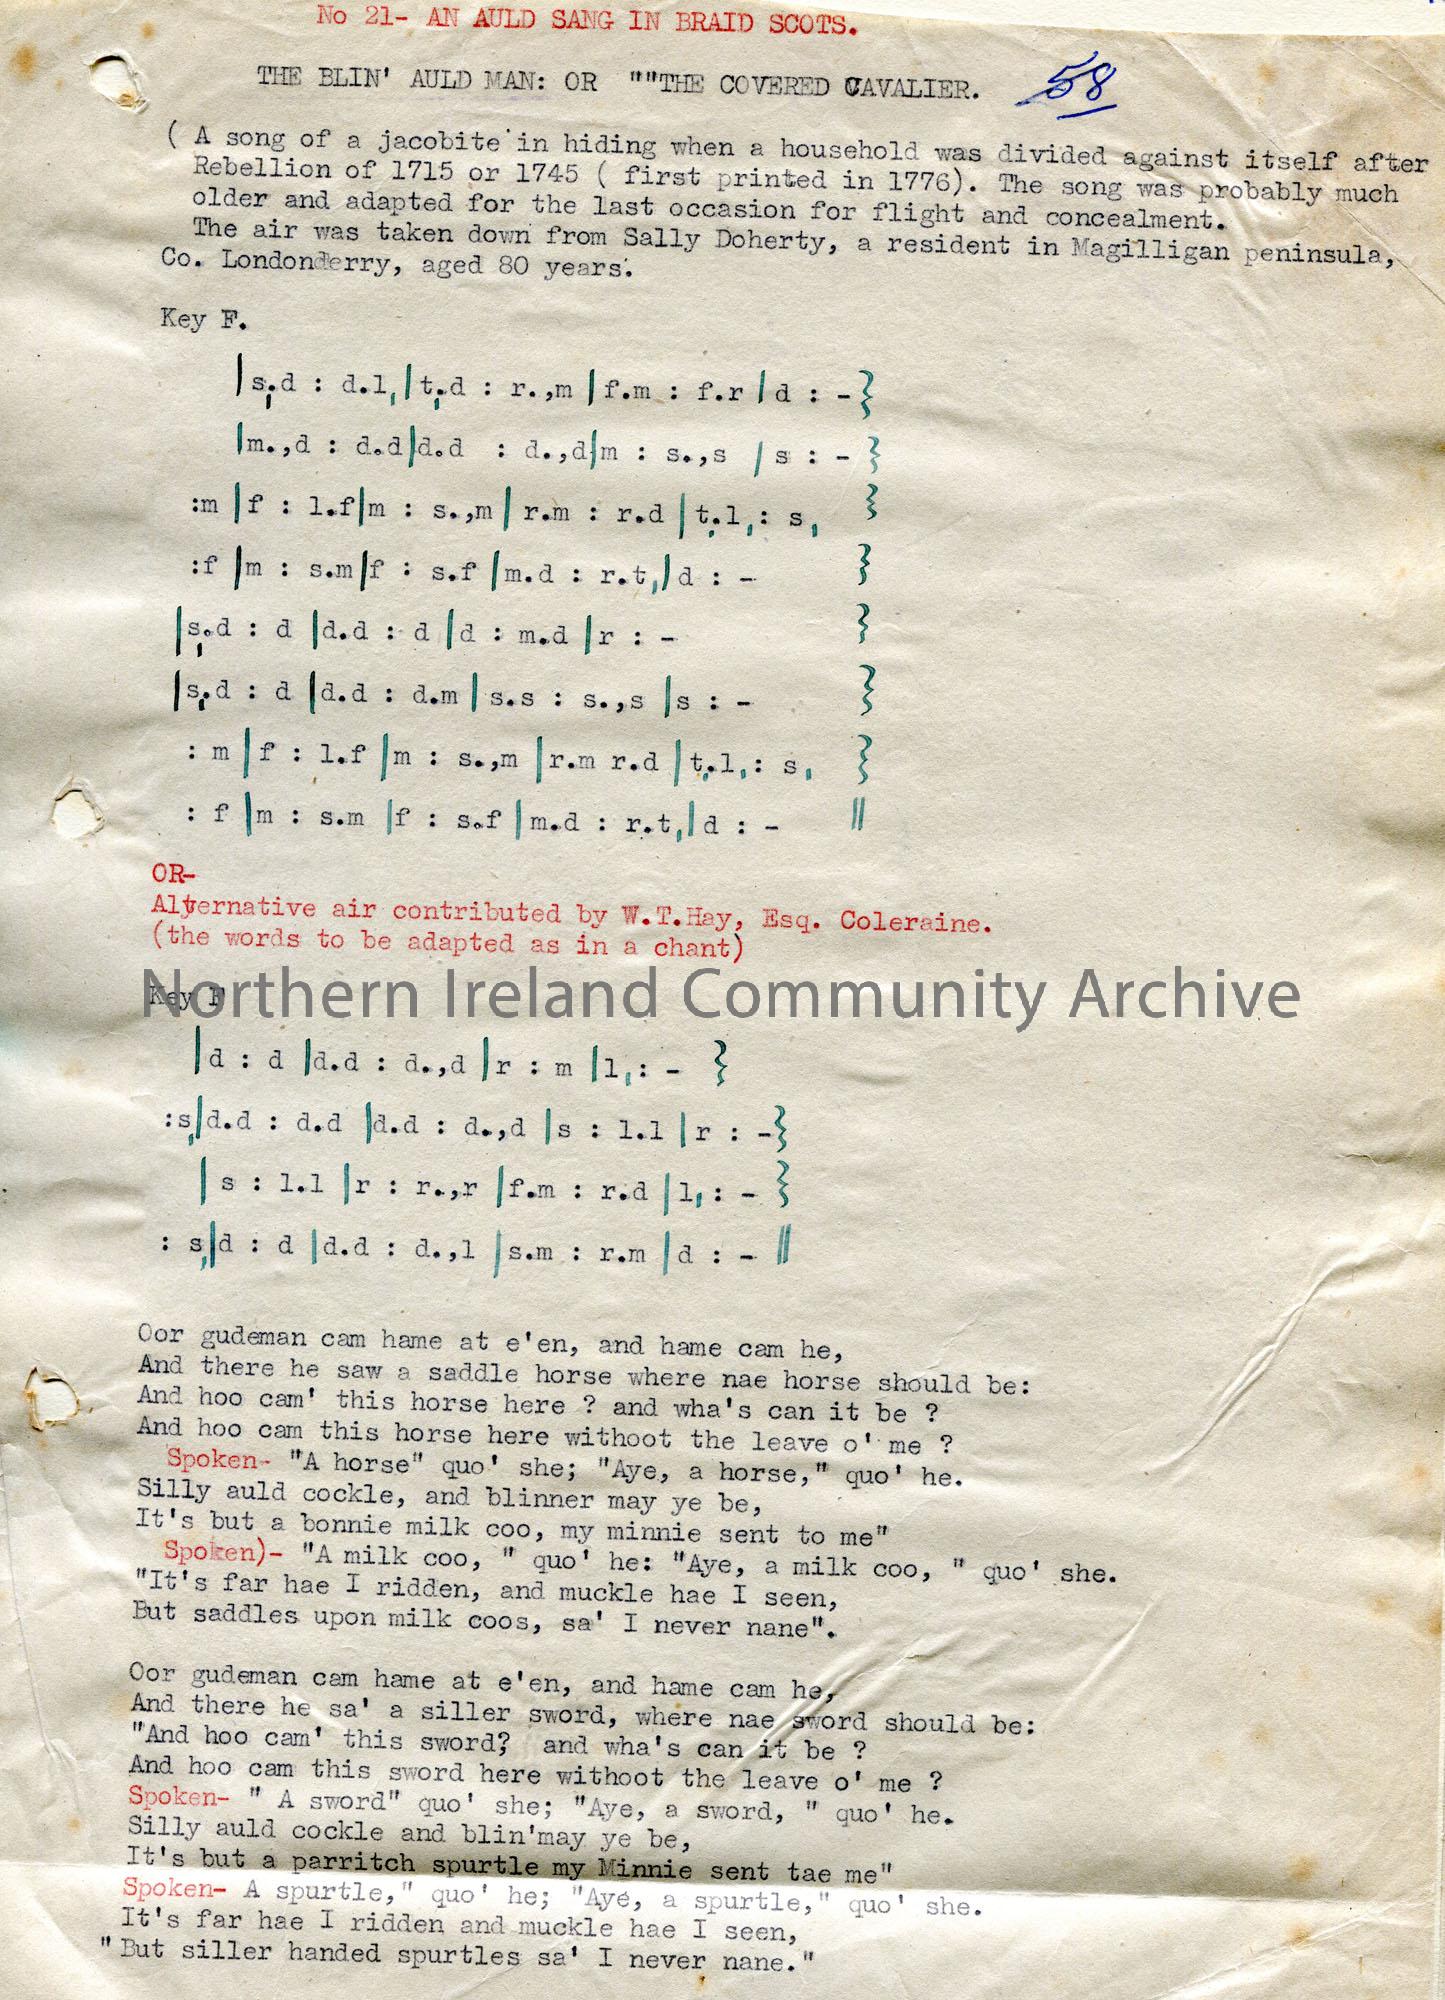 No 21- AN AULD SANG IN BRAID SCOTS.
THE BLIN' AULD MAN: OR ""THE COVERED CAVALIER. 58
( A song of a jacobite in hiding when a household was divided against itself after
Rebellion of 1715 or 1745 ( first printed in 1776). The song was probably much
older and adapted for the last occasion for flight and concealment.
The air was taken down from Sally Doherty, a resident in Magilligan peninsula,
Co. Londonderry, aged 80 years.
Key F.
|s,.d : d.l,|t,.d : r.,m |f.m : f.r |d : -}
|m.,d : d.d|d.d : d.,d|m : s.,s |s : -}
:m |f : l.f|m : s.,m| r.m : r.d |t,.l,: s, }
:f |m : s.m|f : s.f |m.d : r.t,|d : - }
|s,.d : d |d.d : d |d : m.d |r : - }
|s,.d : d |d.d : d.m | s.s : s.,s |s : - }
: m |f : l.f |m : s.,m |r.m r.d |t,.l,: s, }
: f |m : s.m |f : s.f |m.d : r.t,|d : - ||
OR-
Alternative air contributed by W.T.Hay, Esq. Coleraine.
(the words to be adapted as in a chant)
Key F
Northern Ireland Community Archive
|d : d |d.d : d.,d |r : m |l,: - }
:s,|d.d : d.d |d.d : d.,d |s : l.l |r : -}
| s : l.l |r : r.,r |f.m : r.d |l,: - }
: s,|d : d |d.d : d.,l |s.m : r.m |d : - ||
Oor gudeman cam hame at e'en, and hame cam he,
And there he saw a saddle horse where nae horse should be:
And hoo cam' this horse here ? and wha's can it be ?
And hoo cam this horse here withoot the leave o' me ?
Spoken- "A horse" quo' she; "Aye, a horse," quo' he.
Silly auld cockle, and blinner may ye be,
It's but a bonnie milk coo, my minnie sent to me"
Spoken)- "A milk coo, " quo' he: "Aye, a milk coo, " quo' she.
"It's far hae I ridden, and muckle hae I seen,
But saddles upon milk coos, sa' I never nane".
Oor gudeman cam hame at e'en, and hame cam he,
And there he sa' a siller sword, where nae sword should be:
"And hoo cam' this sword? and wha's can it be ?
And hoo cam this sword here withoot the leave o' me ?
Spoken- " A sword" quo' she; "Aye, a sword, " quo' he.
Silly auld cockle and blin'may ye be,
It's but a parritch spurtle my Minnie sent tae me"
Spoken- A spurtle," quo' he; "Aye, a spurtle," quo' she.
It's far hae I ridden and muckle hae I seen,
"But siller handed spurtles sa' I never nane."